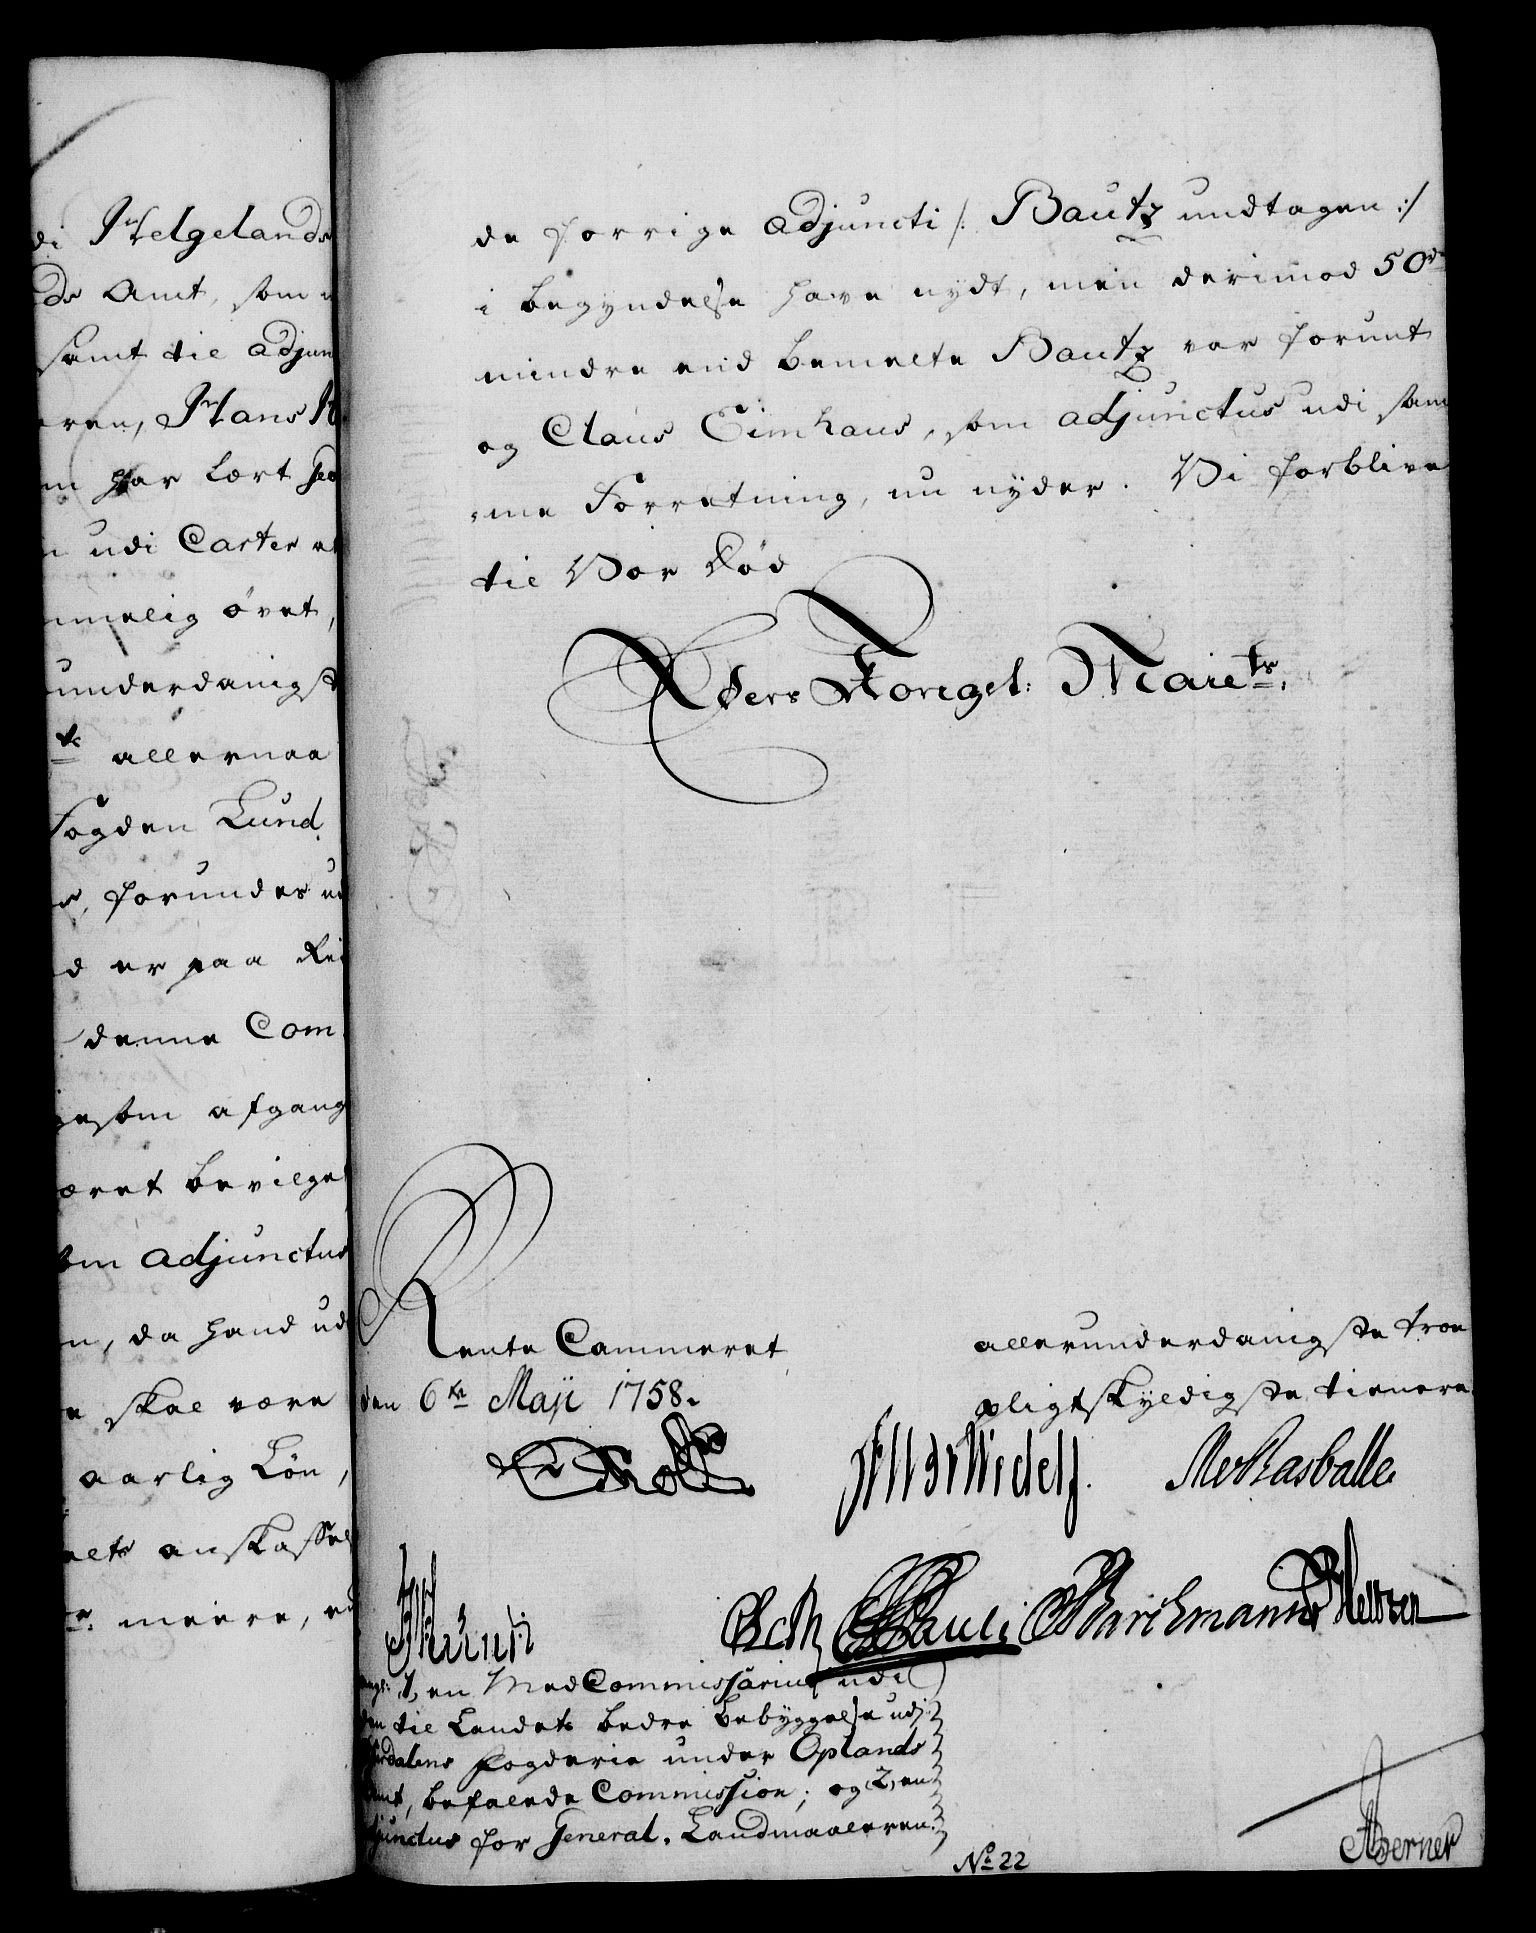 di Helgelands
ds Amt, som
samt til adjun
ren, Hans H
m har lært Geo
n udi Carter at
mmelig øvet,
underdanigst
allernaa
Fogden Lund
forundes ud
d er paa Rei
denne Com
gesom afgang
æret bevilget
om adjunctus
n, da hand ud
e skal være
aarlig Løn,
anskaffel
meere,
de forrige adjuncti /: Bautz undtagen :/
i begyndelse have nydt, men derimod 50 rd
mindre end bemelte Bautz var forunt
og Claus Eimhaus, som adjunctus udi sam
me Forretning, nu nyder. Vi forblive
til Vor Død
Eders Kongel: Maiets.
Rente Cammeret
den 6te Maji 1758.
allerunderdanigste troe
pligtskyldigste tienere
Holst
Widel
Rasballe
Pauli
Barchmann
Heltzen
1, en Med Commissarius udi
den til Landets bedre bebyggelse udi
Østerdalens Fogderie under Oplands
Amt, befalede Commission; og 2, en
Adjunctus for General-Landmaaleren.
No 22
Berner